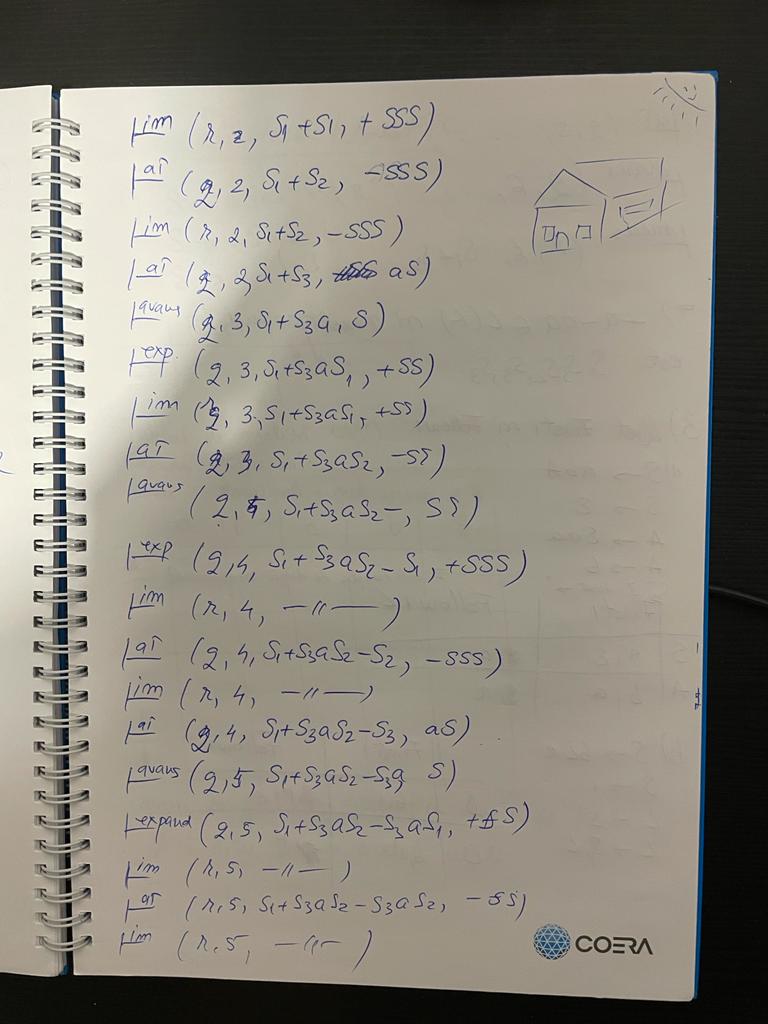 |im (r, 2, S1+S1, +SSS)
|aî (q, 2, S1+S2, -SSS)
|im (r, 2, S1+S2, -SSS)
|aî (q, 2, S1+S3, aS)
|avans (q, 3, S1+S3a, S)
|exp. (q, 3, S1+S3aS1, +SS)
|im (r, 3, S1+S3aS1, +SS)
|aî (q, 3, S1+S3aS2, -SS)
|avans (q, 4, S1+S3aS2-, SS)
|exp (q, 4, S1+S3aS2-S1, +SSS)
|im (r, 4, —"—)
|aî (q, 4, S1+S3aS2-S2, -SSS)
|im (r, 4, —"—)
|aî (q, 4, S1+S3aS2-S3, aS)
|avans (q, 5, S1+S3aS2-S3a, S)
|expand (q, 5, S1+S3aS2-S3aS1, +SS)
|im (r, 5, —"—)
|aî (r, 5, S1+S3aS2-S3aS2, -SS)
|im (r, 5, —"—)
COERA